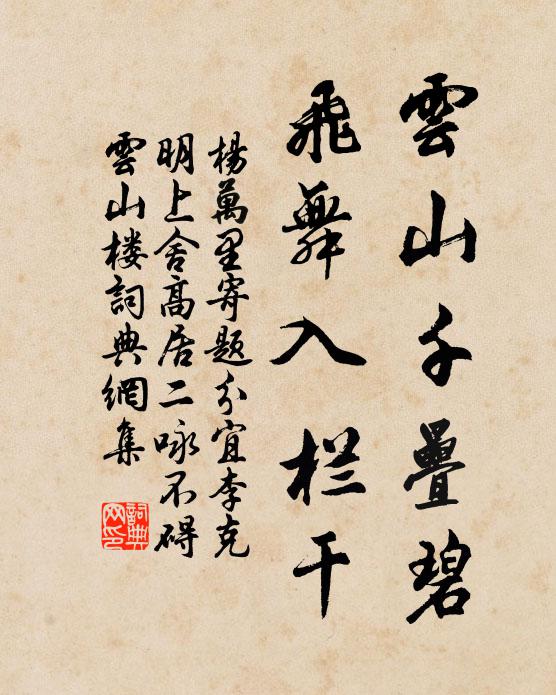 雲山千疊碧
飛舞入栏干
楊萬里寄題分宜李克
明上舍高居二咏不碍
雲山楼詞典網集
詞典
网印